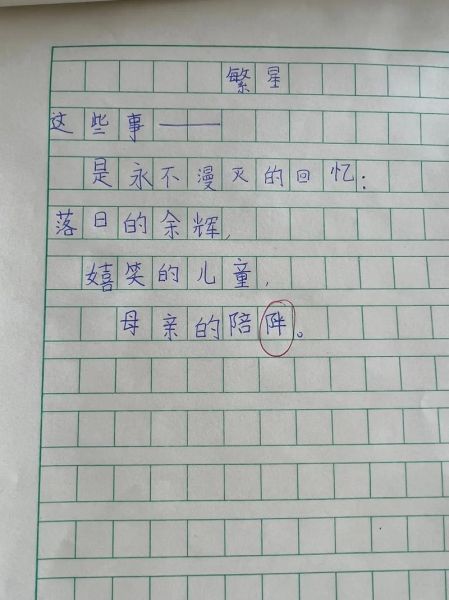 繁星
这些事——
是永不漫灭的回忆:
落日的余辉,
嬉笑的儿童,
母亲的陪。